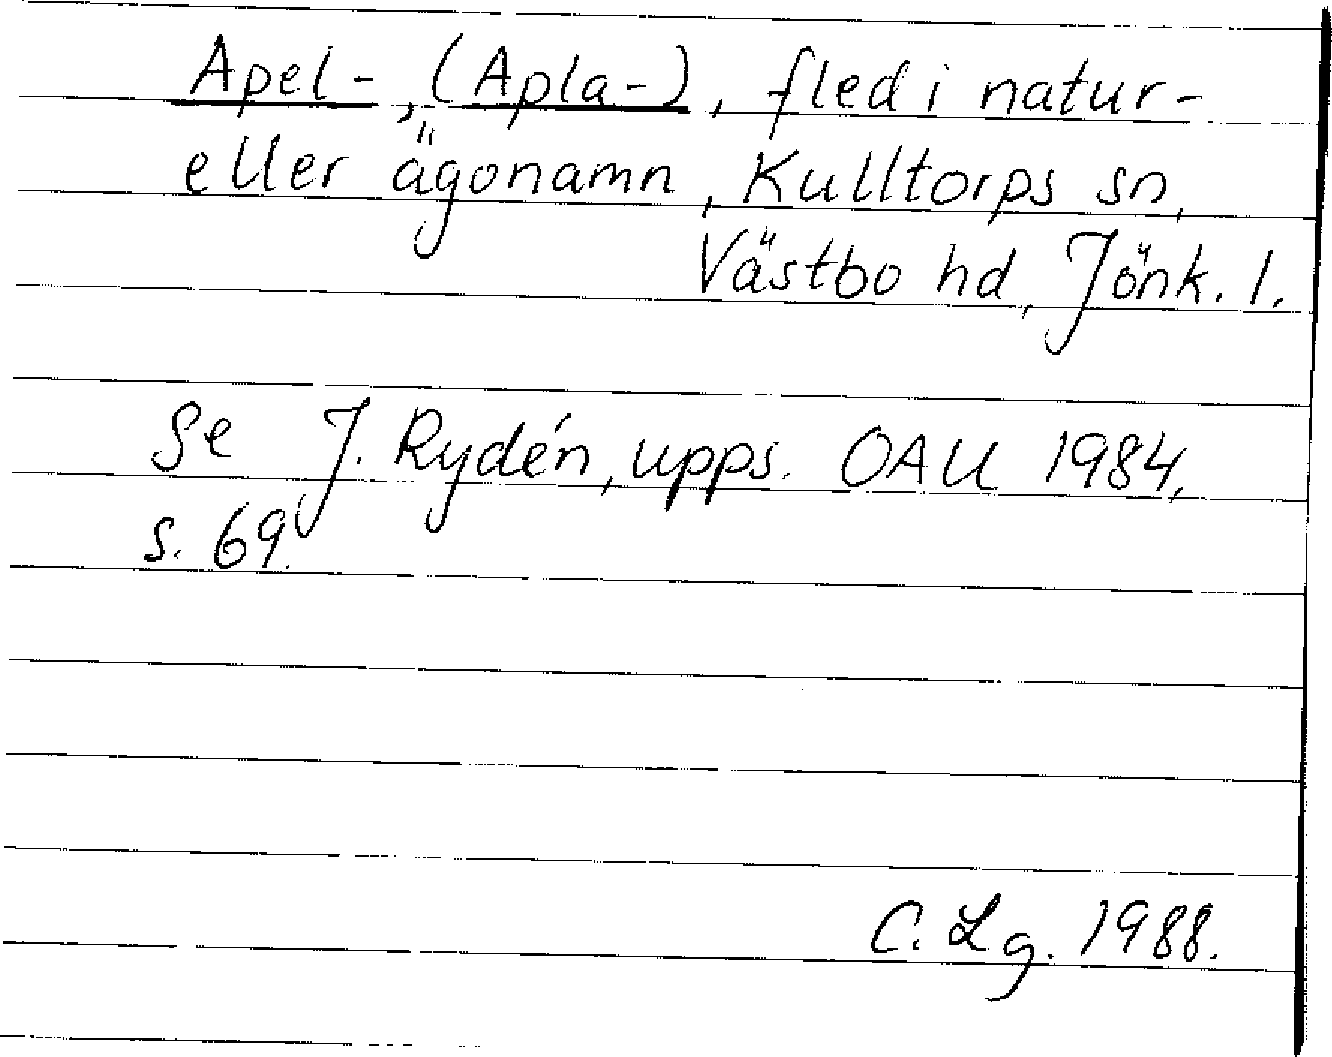 Apel-, (Apla-), fled i natur-
eller ägonamn, Kulltorps sn,
Västbo hd, Jönk. l.
Se J. Rydén, upps. OAU 1984,
s. 69.
C. Lg. 1988.